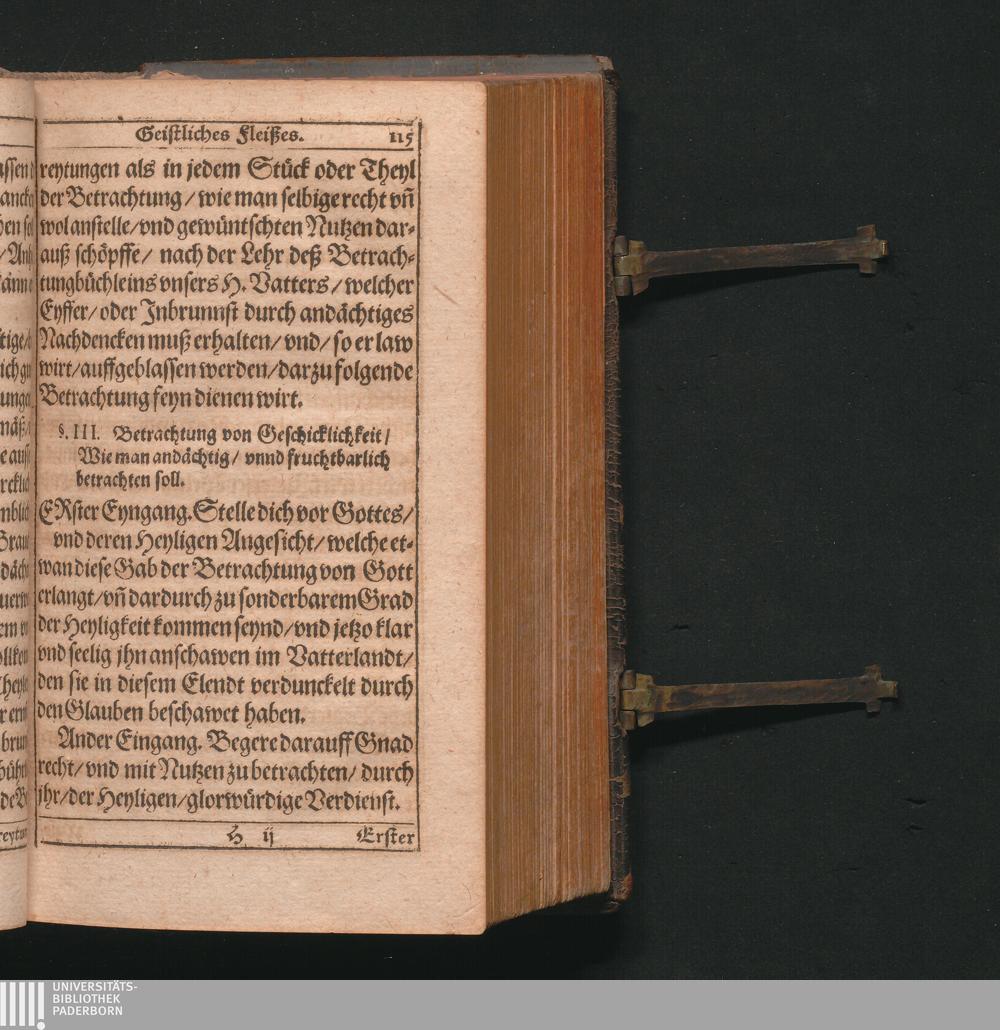 Geistliches Fleißes. 115
reytungen als in jedem Stück oder Theyl
der Betrachtung / wie man selbige recht vñ
wol anstelle / vnd gewüntschten Nutzen dar-
auß schöpffe / nach der Lehr deß Betrach-
tungbüchleins vnsers H. Vatters / welcher
Eyffer / oder Inbrunnst durch andächtiges
Nachdencken muß erhalten / vnd / so er law
wirt / auffgeblassen werden / darzu folgende
Betrachtung feyn dienen wirt.
§. III. Betrachtung von Geschicklichkeit /
Wie man andächtig / vnnd fruchtbarlich
betrachten soll.
ERster Eyngang. Stelle dich vor Gottes /
vnd deren Heyligen Angesicht / welche et-
wan diese Gab der Betrachtung von Gott
erlangt / vñ dardurch zu sonderbarem Grad
der Heyligkeit kommen seynd / vnd jetzo klar
vnd seelig jhn anschawen im Vatterlandt /
den sie in diesem Elendt verdunckelt durch
den Glauben beschawet haben.
Ander Eingang. Begere darauff Gnad
recht / vnd mit Nutzen zu betrachten / durch
jhr / der Heyligen / glorwürdige Verdienst.
H ij Erster
UNIVERSITÄTS-
BIBLIOTHEK
PADERBORN